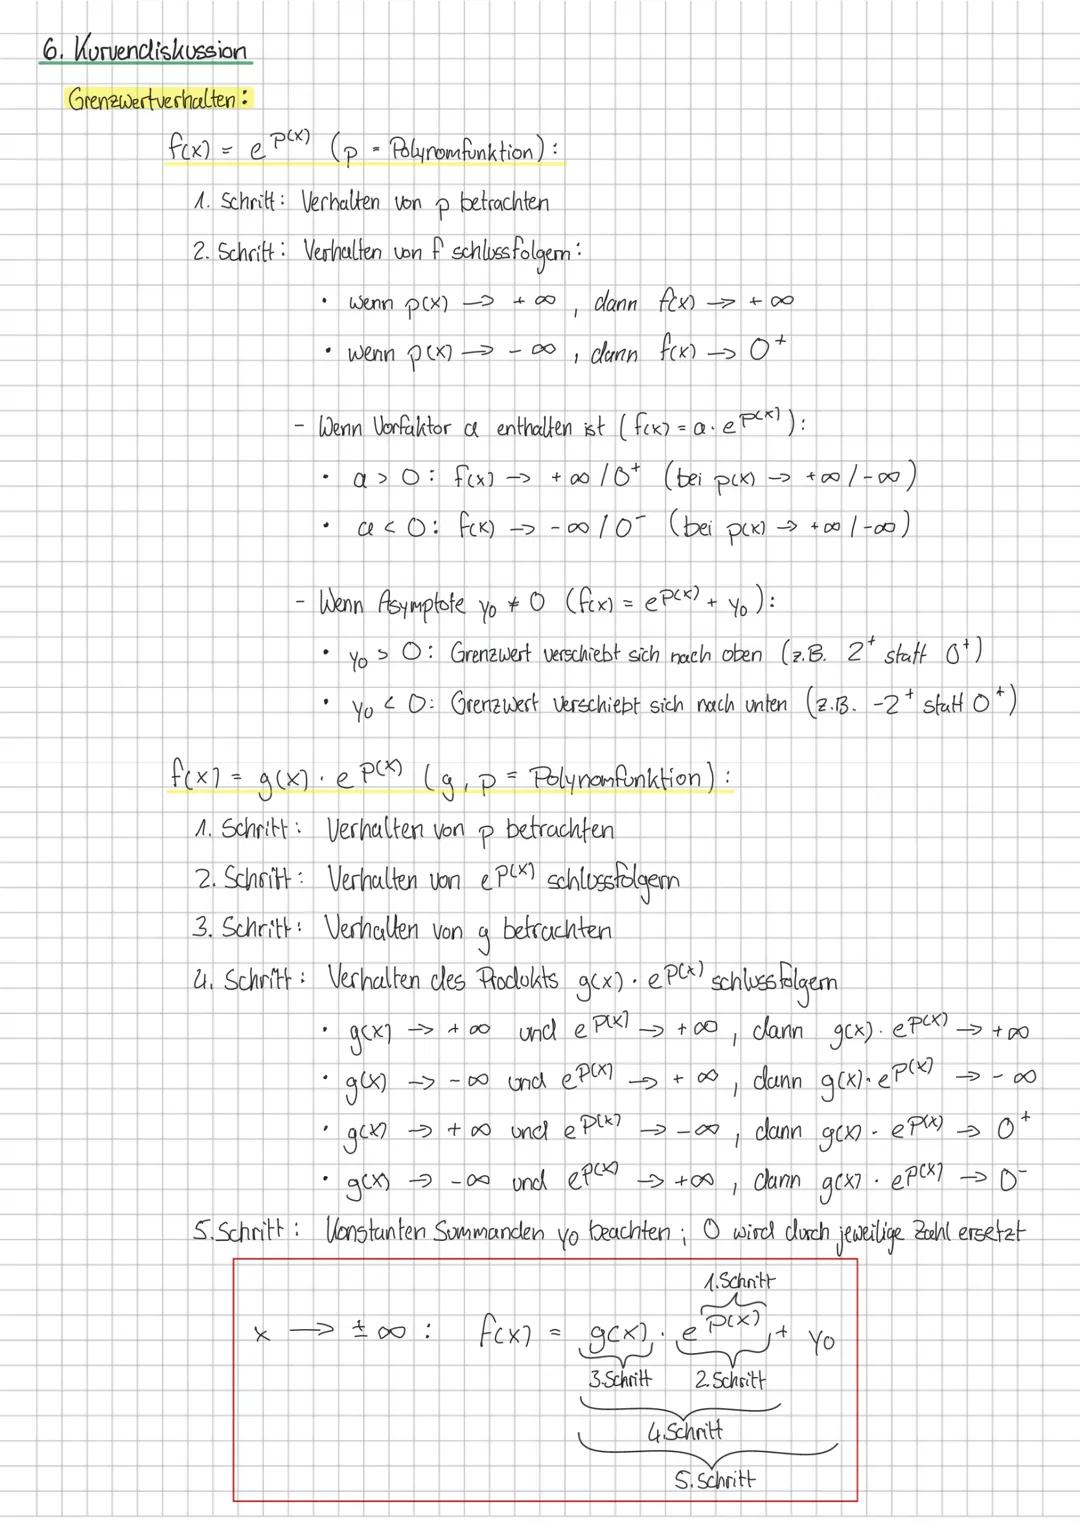 6. Kurvendiskussion
Grenzwertverhalten:
f(x) = e^p(x) (p = Polynomfunktion):
1. Schritt: Verhalten von p betrachten
2. Schritt: Verhalten von f schlussfolgern:
• wenn p(x) → +∞, dann f(x) → +∞
• wenn p(x) → -∞, dann f(x) → 0⁺
- Wenn Vorfaktor a enthalten ist (f(x) = a · e^p(x)):
• a > 0: f(x) → +∞/0⁺ (bei p(x) → +∞/-∞)
• a < 0: f(x) → -∞/0⁻ (bei p(x) → +∞/-∞)
- Wenn Asymptote y₀ ≠ 0 (f(x) = e^p(x) + y₀):
• y₀ > 0: Grenzwert verschiebt sich nach oben (z.B. 2⁺ statt 0⁺)
• y₀ < 0: Grenzwert verschiebt sich nach unten (z.B. -2⁺ statt 0⁺)
f(x) = g(x) · e^p(x) (g, p = Polynomfunktion):
1. Schritt: Verhalten von p betrachten
2. Schritt: Verhalten von e^p(x) schlussfolgern
3. Schritt: Verhalten von g betrachten
4. Schritt: Verhalten des Produkts g(x) · e^p(x) schlussfolgern
• g(x) → +∞ und e^p(x) → +∞, dann g(x) · e^p(x) → +∞
• g(x) → -∞ und e^p(x) → +∞, dann g(x) · e^p(x) → -∞
• g(x) → +∞ und e^p(x) → -∞, dann g(x) · e^p(x) → 0⁺
• g(x) → -∞ und e^p(x) → +∞, dann g(x) · e^p(x) → 0⁻
5. Schritt: Konstanten Summanden y₀ beachten; 0 wird durch jeweilige Zahl ersetzt
1. Schritt
x → ±∞: f(x) = g(x) · e^p(x) + y₀
3. Schritt 2. Schritt
4. Schritt
5. Schritt